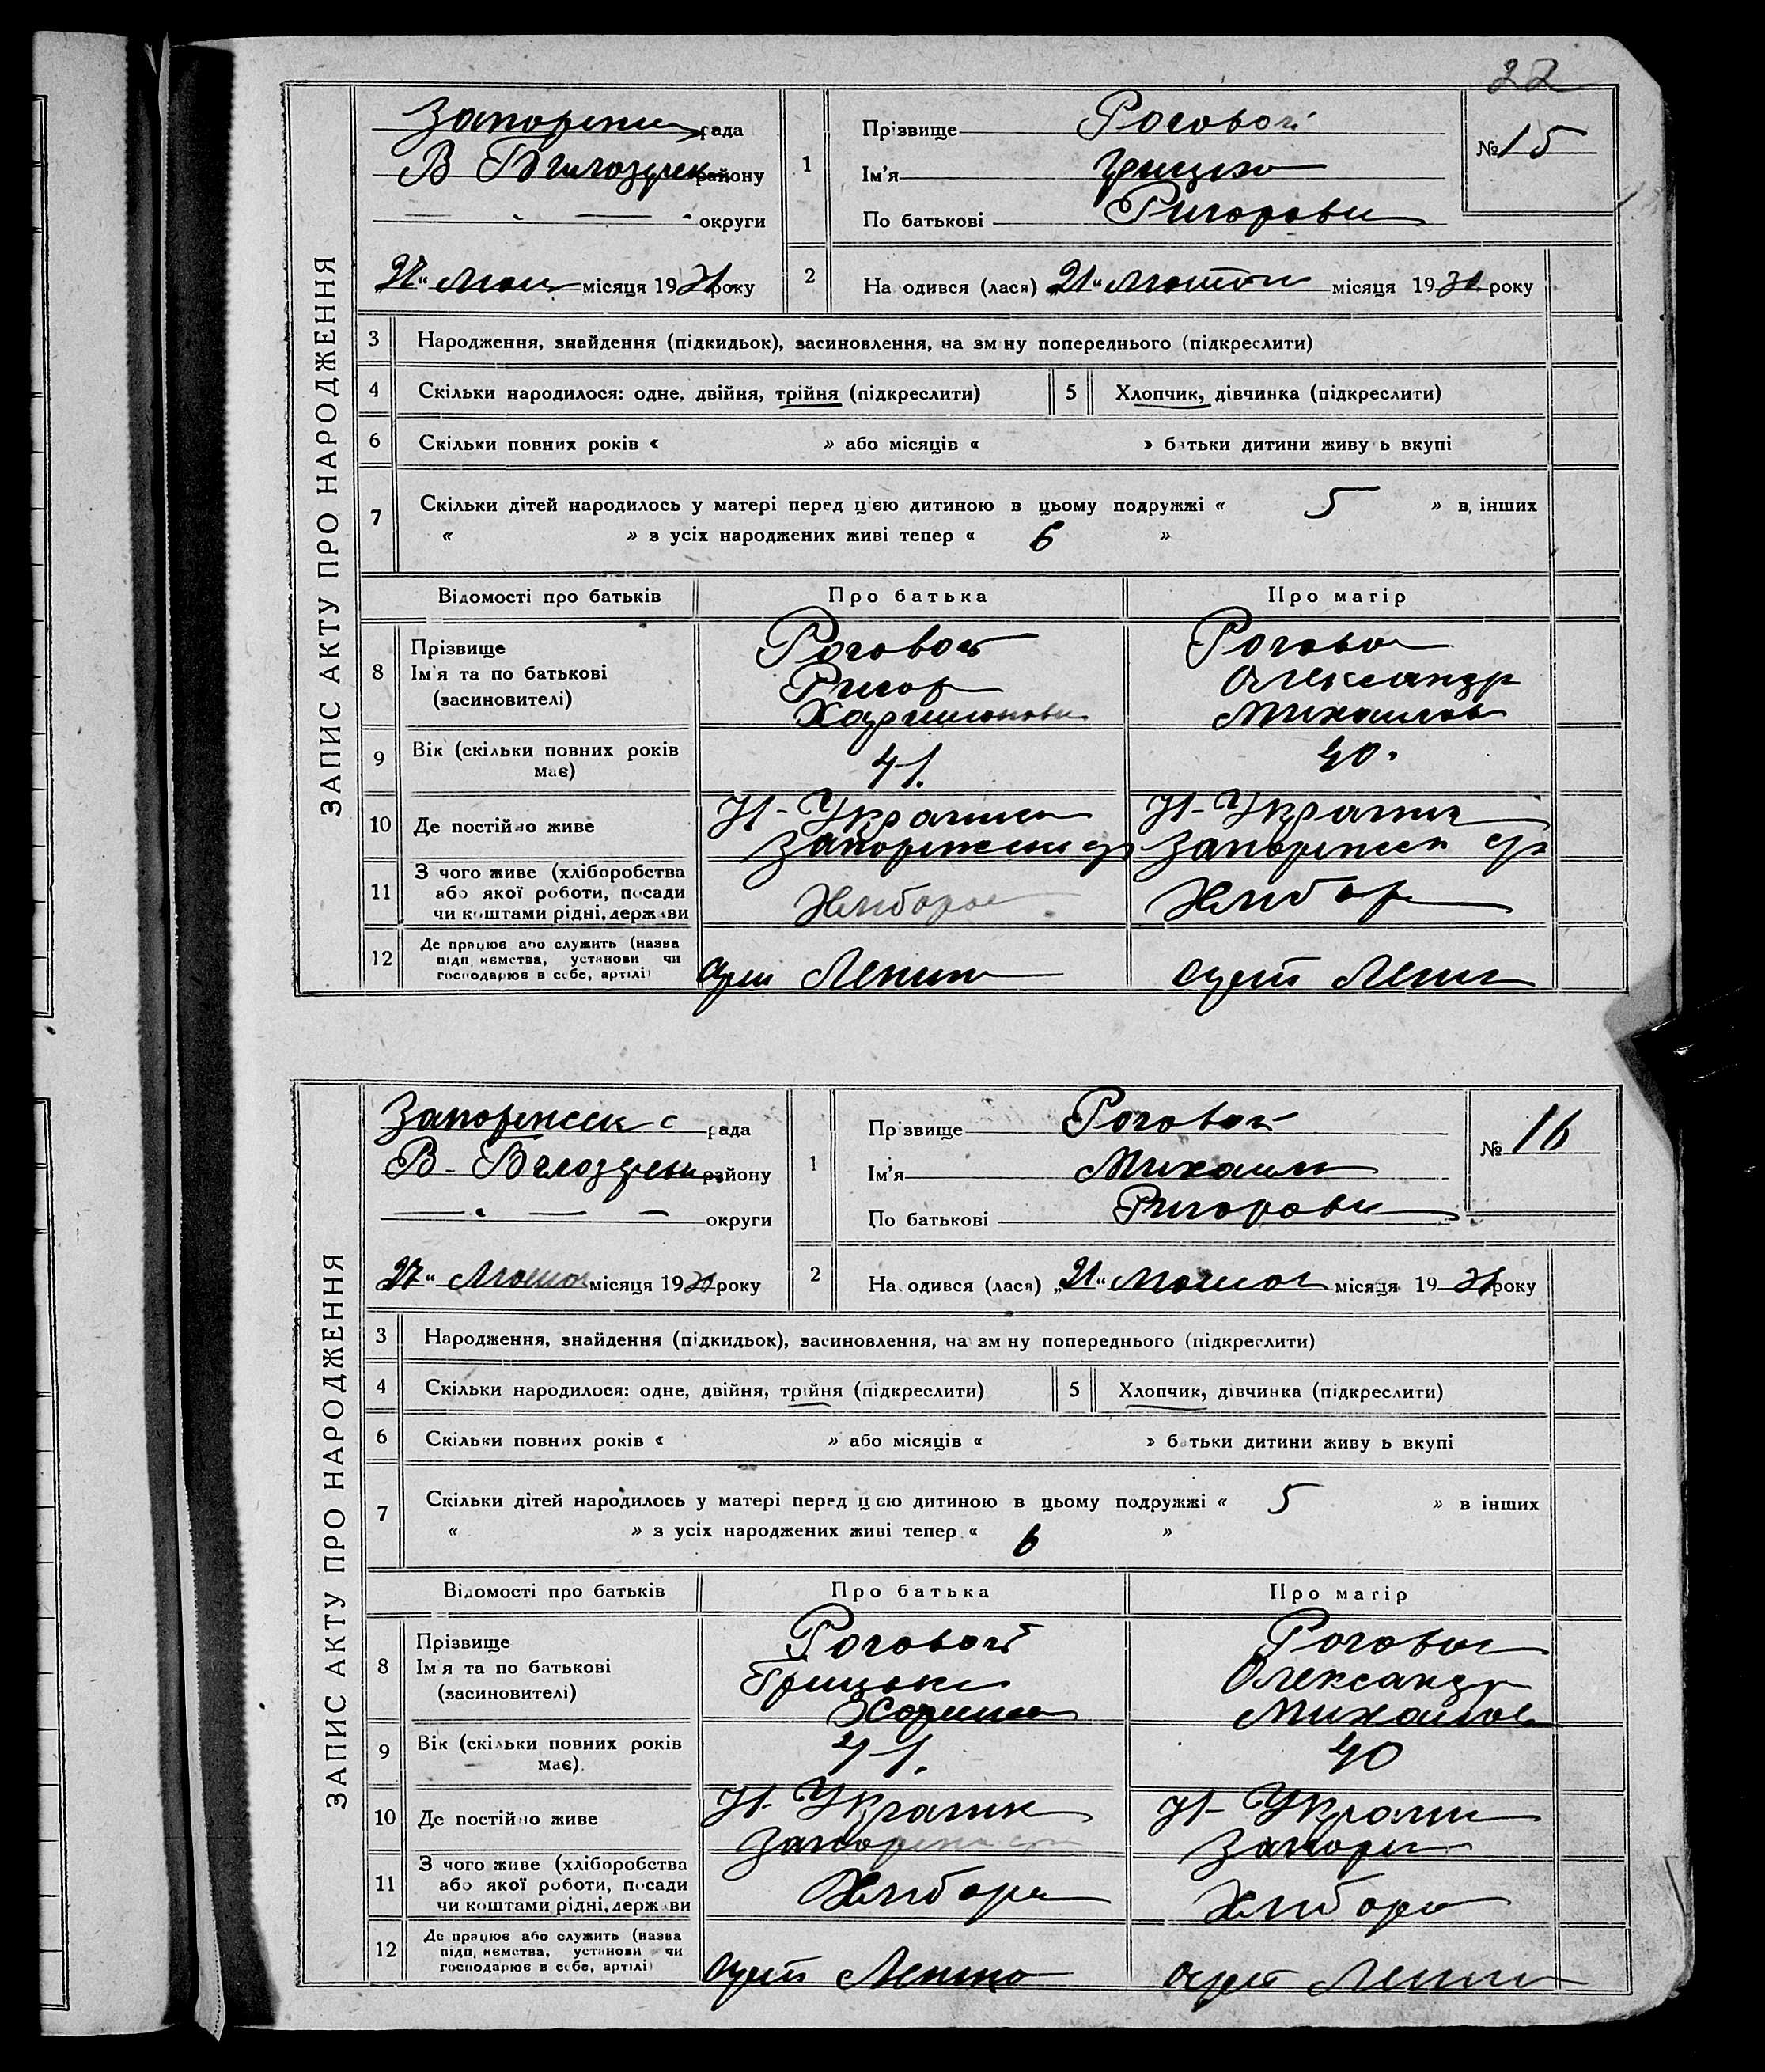 22
Запорижськ рада
В Билозерск району
округи
"27" Мая місяця 1931 року
1
Прізвище Роговой
Ім'я Грицько
По батькові Ригорови
№ 15
2
На одився (лася) „21" Мая місяця 1931 року
ЗАПИС АКТУ ПРО НАРОДЖЕННЯ
3 Народження, знайдення (підкидьок), засиновлення, на зм ну попереднього (підкреслити)
4 Скільки народилося: одне, двійня, трійня (підкреслити)
5 Хлопчик, дівчинка (підкреслити)
6 Скільки повних років « » або місяців « » батьки дитини живу ь вкупі
7 Скільки дітей народилось у матері перед цією дитиною в цьому подружжі « 5 » в інших
« » з усіх народжених живі тепер « 6 »
Відомості про батьків
Про батька
Про матір
8
Прізвище
Ім'я та по батькові
(засиновителі)
Роговой
Ригор
Роговой
Олександр
Михаилов
9
Вік (скільки повних років
має)
41.
40.
10 Де постійно живе
Н-Украинк
Запорижськ
Н-Украинк
Запорижськ
11
З чого живе (хліборобства
або якої роботи, посади
чи коштами рідні, держави
Хлибороб
Хлибор
12
Де працює або служить (назва
підп.иємства, установи чи
господарює в себе, артілі)
Ленина
Ленин
Запорижськ с рада
В-Билозерськ району
округи
"27" Мая місяця 1931 року
1
Пр звище Роговой
Ім'я Михаил
По батькові Ригорови
№ 16
2
На одився (лася) „21" Мая місяця 1931 року
ЗАПИС АКТУ ПРО НАРОДЖЕННЯ
3 Народження, знайдення (підкидьок), засиновлення, на зм ну попереднього (підкреслити)
4 Скільки народилося: одне, двійня, трійня (підкреслити)
5 Хлопчик, дівчинка (підкреслити)
6 Скільки повних років « » або місяців « » батьки дитини живу ь вкупі
7 Скільки дітей народилось у матері перед цією дитиною в цьому подружжі « 5 » в інших
« » з усіх народжених живі тепер « 6 »
Відомості про батьків
Про батька
Про матір
8
Прізвище
Ім'я та по батькові
(засиновителі)
Роговой
Грицько
Роговой
Олександр
Михаилов
9
Вік (скільки повних років
має)
41.
40
10 Де постійно живе
Н-Украинк
Запорижськ
Н-Украинк
Запори
11
З чого живе (хліборобства
або якої роботи, посади
чи коштами рідні, держави
Хлибороб
Хлибороб
12
Де працює або служить (назва
підп.иємства, установи чи
господарює в себе, артілі)
Ленина
Ленин